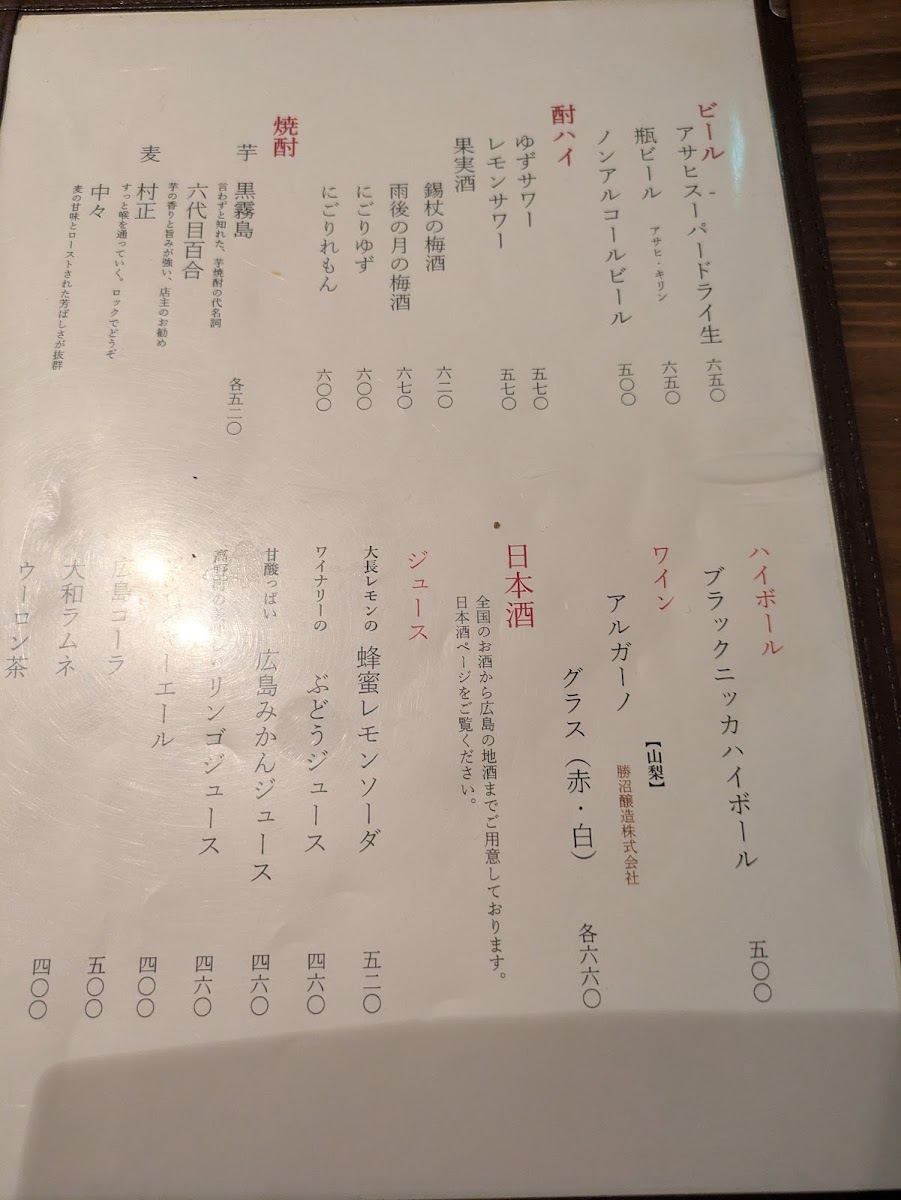 ビール
アサヒスーパードライ生 六五〇
瓶ビール アサヒ・キリン 六五〇
ノンアルコールビール 五〇〇
酎ハイ
ゆずサワー 五七〇
レモンサワー 五七〇
果実酒
錫杖の梅酒 六二〇
雨後の月の梅酒 六七〇
にごりゆず 六〇〇
にごりれもん 六〇〇
焼酎
芋 黒霧島 各五二〇
言わずと知れた、芋焼酎の代名詞
六代目百合
芋の香りと旨みが強い、店主のお勧め
麦 村正
すっと喉を通っていく。ロックでどうぞ
中々
麦の甘味とローストされた芳ばしさが抜群
ハイボール
ブラックニッカハイボール 五〇〇
ワイン
【山梨】
勝沼醸造株式会社
アルガーノ
グラス（赤・白） 各六六〇
日本酒
全国のお酒から広島の地酒までご用意しております。
日本酒ページをご覧ください。
ジュース
大長レモンの 蜂蜜レモンソーダ 五二〇
ワイナリーの ぶどうジュース 四六〇
甘酸っぱい 広島みかんジュース 四六〇
リンゴジュース 四六〇
エール 四〇〇
広島コーラ 五〇〇
大和ラムネ 四〇〇
ウーロン茶